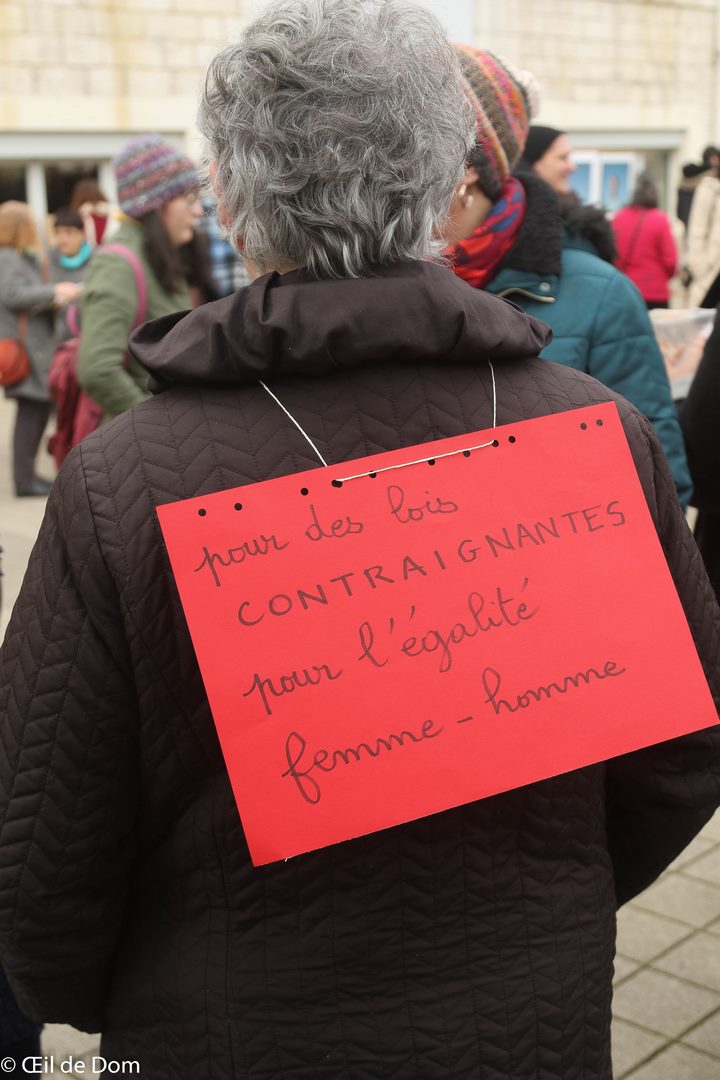 pour des lois
CONTRAIGNANTES
pour l'égalité
femme - homme
© Œil de Dom